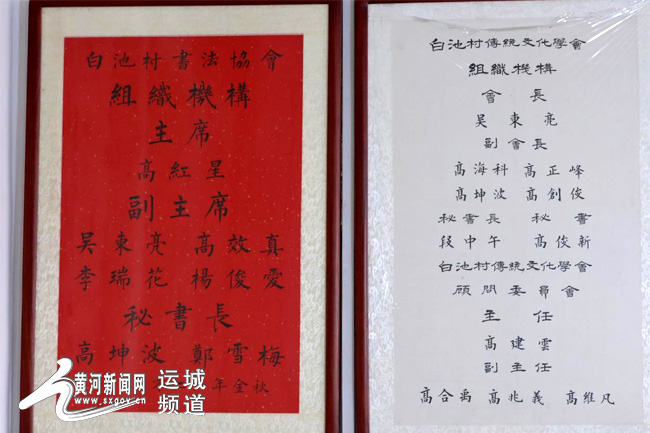 白池村書法協會
組織機構
主席
高紅星
副主席
吴東亮 高效真
李瑞花 楊俊愛
秘書長
高坤波 鄭雪梅
年金秋
白池村傳統文化學會
組織機構
會長
吴東亮
副會長
高海科 高正峰
高坤波 高創俊
秘書長 秘書
段中午 高俊新
白池村傳統文化學會
顧問委員會
主任
高建雲
副主任
高合禹 高兆義 高維凡
黄河新闻网
www.sxgov.cn
运城
频道